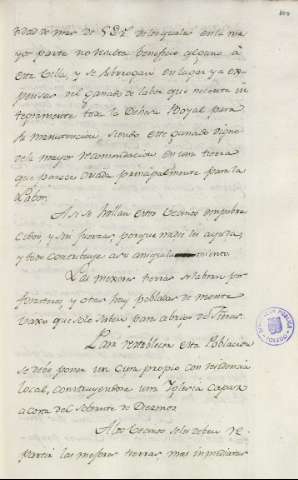 de los quales en la ma
yor parte no resulta beneficio alguno a
esta Villa, y se subrogan en lugar y a ex
pensas del ganado de labor que necesita in
tegramente toda la Dehesa Boyal para
su manutencion, siendo este ganado digno
de la mayor recomendacion en una tierra
que parece criada principalmente para la
Labor.
Asi se hallan estos Vecinos empobre
cidos, y sin fuerzas, porque nadie los ayuda,
y todo contribuye a su aniquilamiento.
Las mexores tierras se labran por
forasteros, y otras hay pobladas de monte
vaxo que solo sirven para abrigo de fieras.
Para restablecer esta Poblacion
se debe poner un Cura propio con residencia
local, construyendose una Yglesia capaz
a costa del sobrante de Diezmos
A los Vecinos se les debera re
partir las mejores tierras, mas inmediatas
TOLEDO